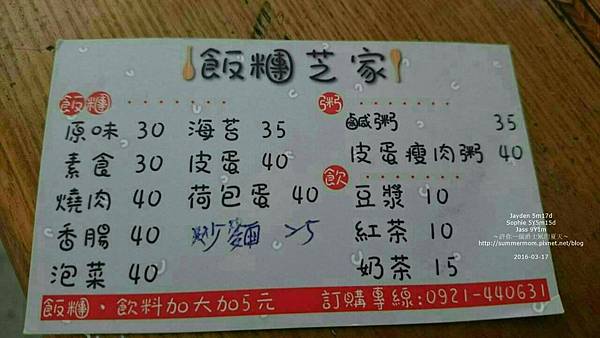 飯糰芝家
飯糰
原味 30 海苔 35
素食 30 皮蛋 40
燒肉 40 荷包蛋 40
香腸 40 炒麵 25
泡菜 40
粥
鹹粥 35
皮蛋瘦肉粥 40
飲
豆漿 10
紅茶 10
奶茶 15
飯糰、飲料加大加5元 訂購專線:0921-440631
Jayden 5m17d
Sophie 5Y5m15d
Jass 9Y1m
http://summermom.pixnet.net/blog
2016-03-17